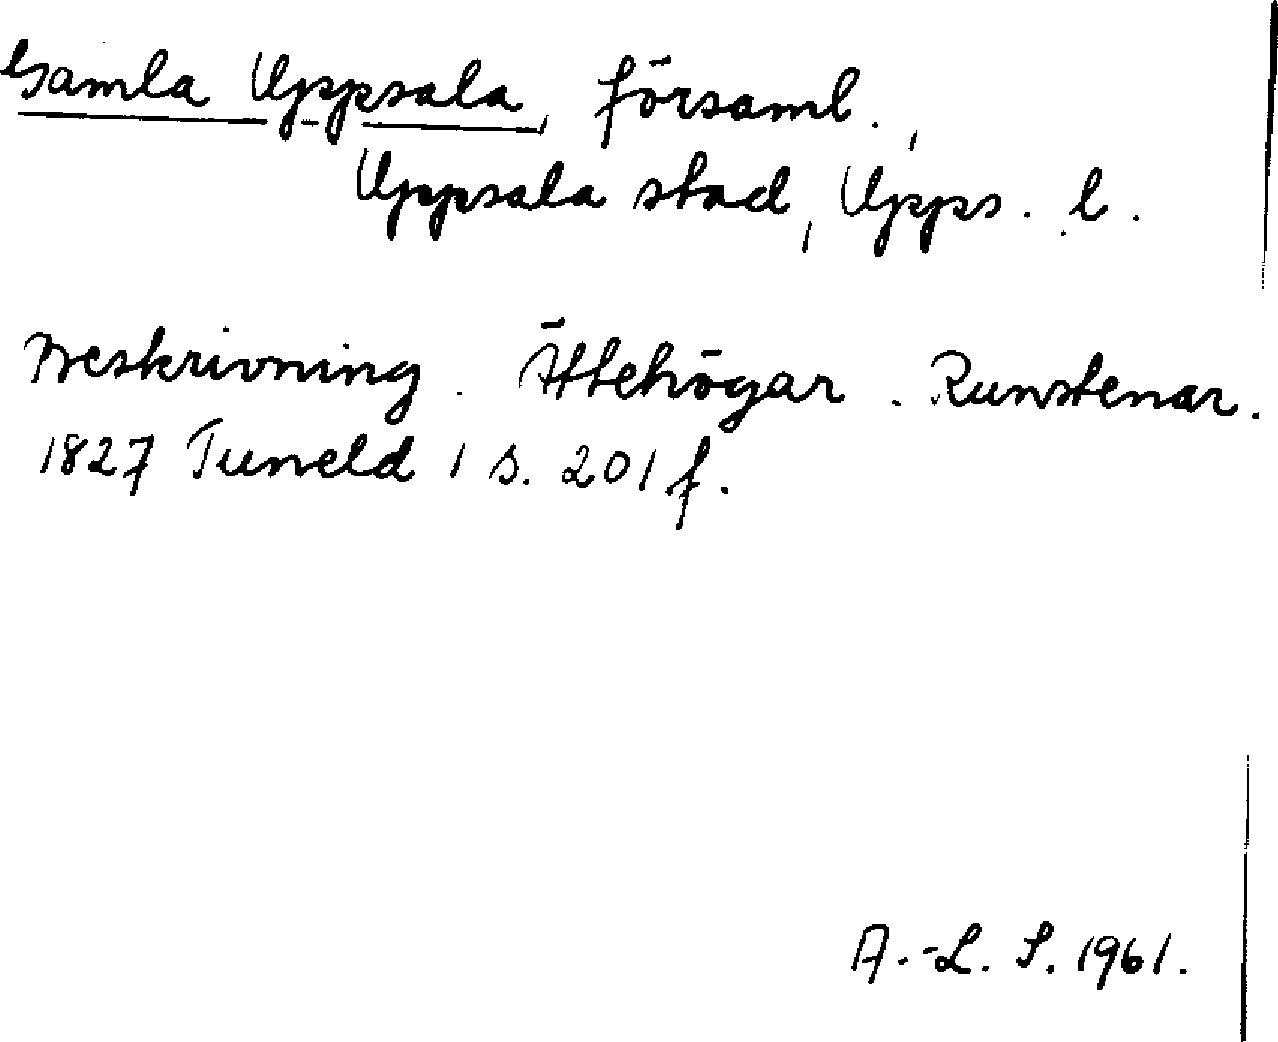 Gamla Uppsala, församl.,
Uppsala stad, Upps. l.
Beskrivning. Ättehögar. Runstenar.
1827 Tuneld 1 s. 201 f.
A.-L. S. 1961.